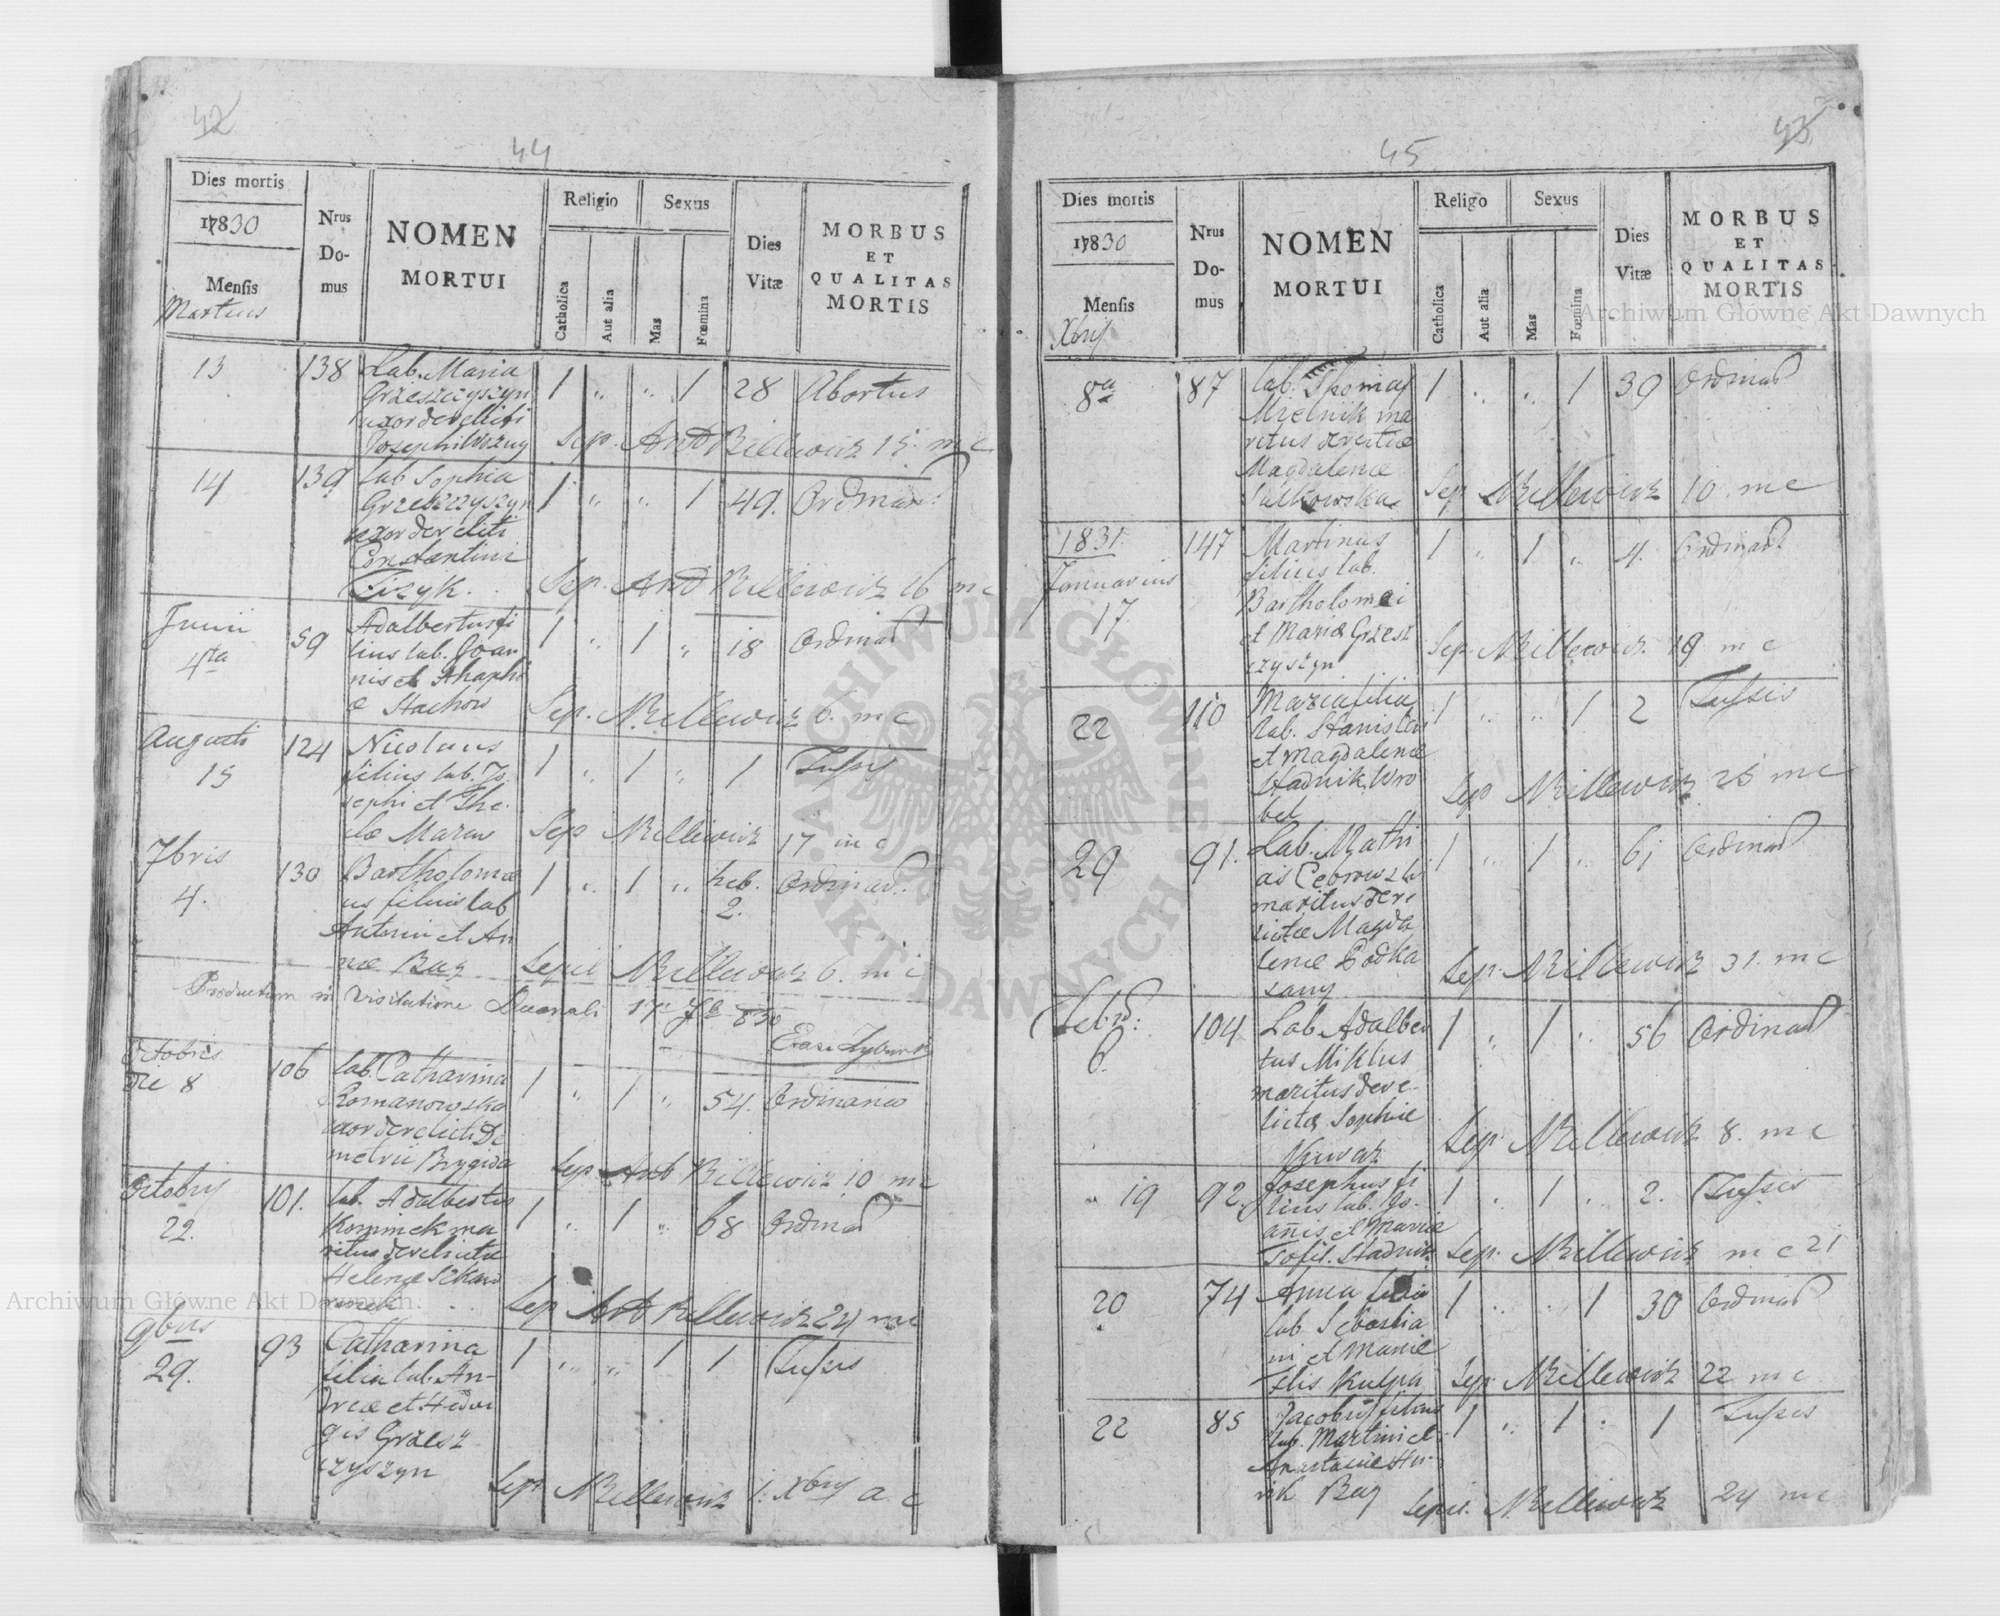 42
44
Dies mortis
1830
Mensis
Martius
Nrus
Do-
mus
NOMEN
MORTUI
Religio
Catholica
Aut alia
Sexus
Mas
Fœmina
Dies
Vitæ
MORBUS
ET
QUALITAS
MORTIS
13
138
Lab. Maria
Grzeszczyszyn
uxor derelicti
Josephi Wozny
1 " " 1 28 Abortus
Sep. Ant Billewicz 15. m c
14
139
Lab Sophia
Grzeszczyszyn
uxor derelicti
Constantini
Fizyk.
1 " " 1 49. Ordinar.
Sep. Ant Billewicz 16 m c
Junii
4ta
59
Adalbertus fi
lius lab. Joan
nis et Ahaphi
æ Stachow
1 " 1 " 18 Ordinar
Sep. Billewicz 6. m c
Augusti
15
124
Nicolaus
filius lab. Jo.
sephi et The.
clæ Mazur
1 " 1 " 1 Tussis
Sep Billewicz 17 m c
7bris
4.
130
Bartholomæ
us filius lab
Antonii et An
næ Buz
1 " 1 " heb. 2. Ordinar.
Sepel Billewicz 6. m c
Productum in Visitatione Decanali 17 7b 830
octobris
die 8
106
lab. Catharina
Romanowska
uxor derelicti De
metrii Brygida
1 " 1 " 54. Ordinaria
Sep Ant Billewicz 10 m c
octobris
22.
101.
lab. Adalbertus
ma
ritus derelictæ
Helenæ
1 " 1 " 68 Ordinar
Sep Ant Billewicz 24 m c
9bris
29.
93
Catharina
filia lab. An-
dreæ et Hedvi
gis Grzesz
czyszyn
1 " " 1 1 Tussis
Sep. Billewicz 1. Xbris a. c
43
45
Dies mortis
1830
Mensis
Xbris
Nrus
Do-
mus
NOMEN
MORTUI
Religo
Catholica
Aut alia
Sexus
Mas
Fœmina
Dies
Vitæ
MORBUS
ET
QUALITAS
MORTIS
8a
87
lab. Thomas
Mielnik ma
ritus derelictæ
Magdalenæ
1 " " 1 39 Ordinar
Sep Billewicz 10. m c
1831.
Januarius
17.
147
Martinus
filius lab.
Bartholomei
et Mariæ Grzesz
czyszyn
1 " 1 " 4. Ordinar
Sep. Billewicz. 19 m c
22
110
Maria filia
Lab. Stanislai
et Magdalenæ
Stadnik Wro
bel
1 " " 1 2 Tussis
Sep Billewicz 25 m c
29
91.
Lab. Mathi
as Cebrowski
maritus dere
lictæ Magda
lenæ
1 " 1 " 61 Ordinar
Sep. Billewicz 31. m c
Febr.
6.
104
Lab. Adalber
tus Miklus
maritus dere.
lictæ Sophiæ
1 " 1 " 56 Ordinar
Sep. Billewicz 8. m c
19
92.
Josephus fi
lius lab. Jo.
anis et Mariæ
Tofil. Stadnik
1 " 1 " 2. Tussis
Sep. Billewicz m c 21
20
74
Anna filia
lab Sebastia
ni et Mariæ
Flis Kulpa
1 " " 1 30 Ordinar
Sep. Billewicz 22 m c
22
85
Jacobus filius
lab. Martini et
Anastasiæ Hu-
nik Buz
1 " 1 " 1 Tussis
Sepel. Billewicz 24 m c
Archiwum Główne Akt Dawnych
Archiwum Główne Akt Dawnych
ARCHIWUM GŁÓWNE AKT DAWNYCH